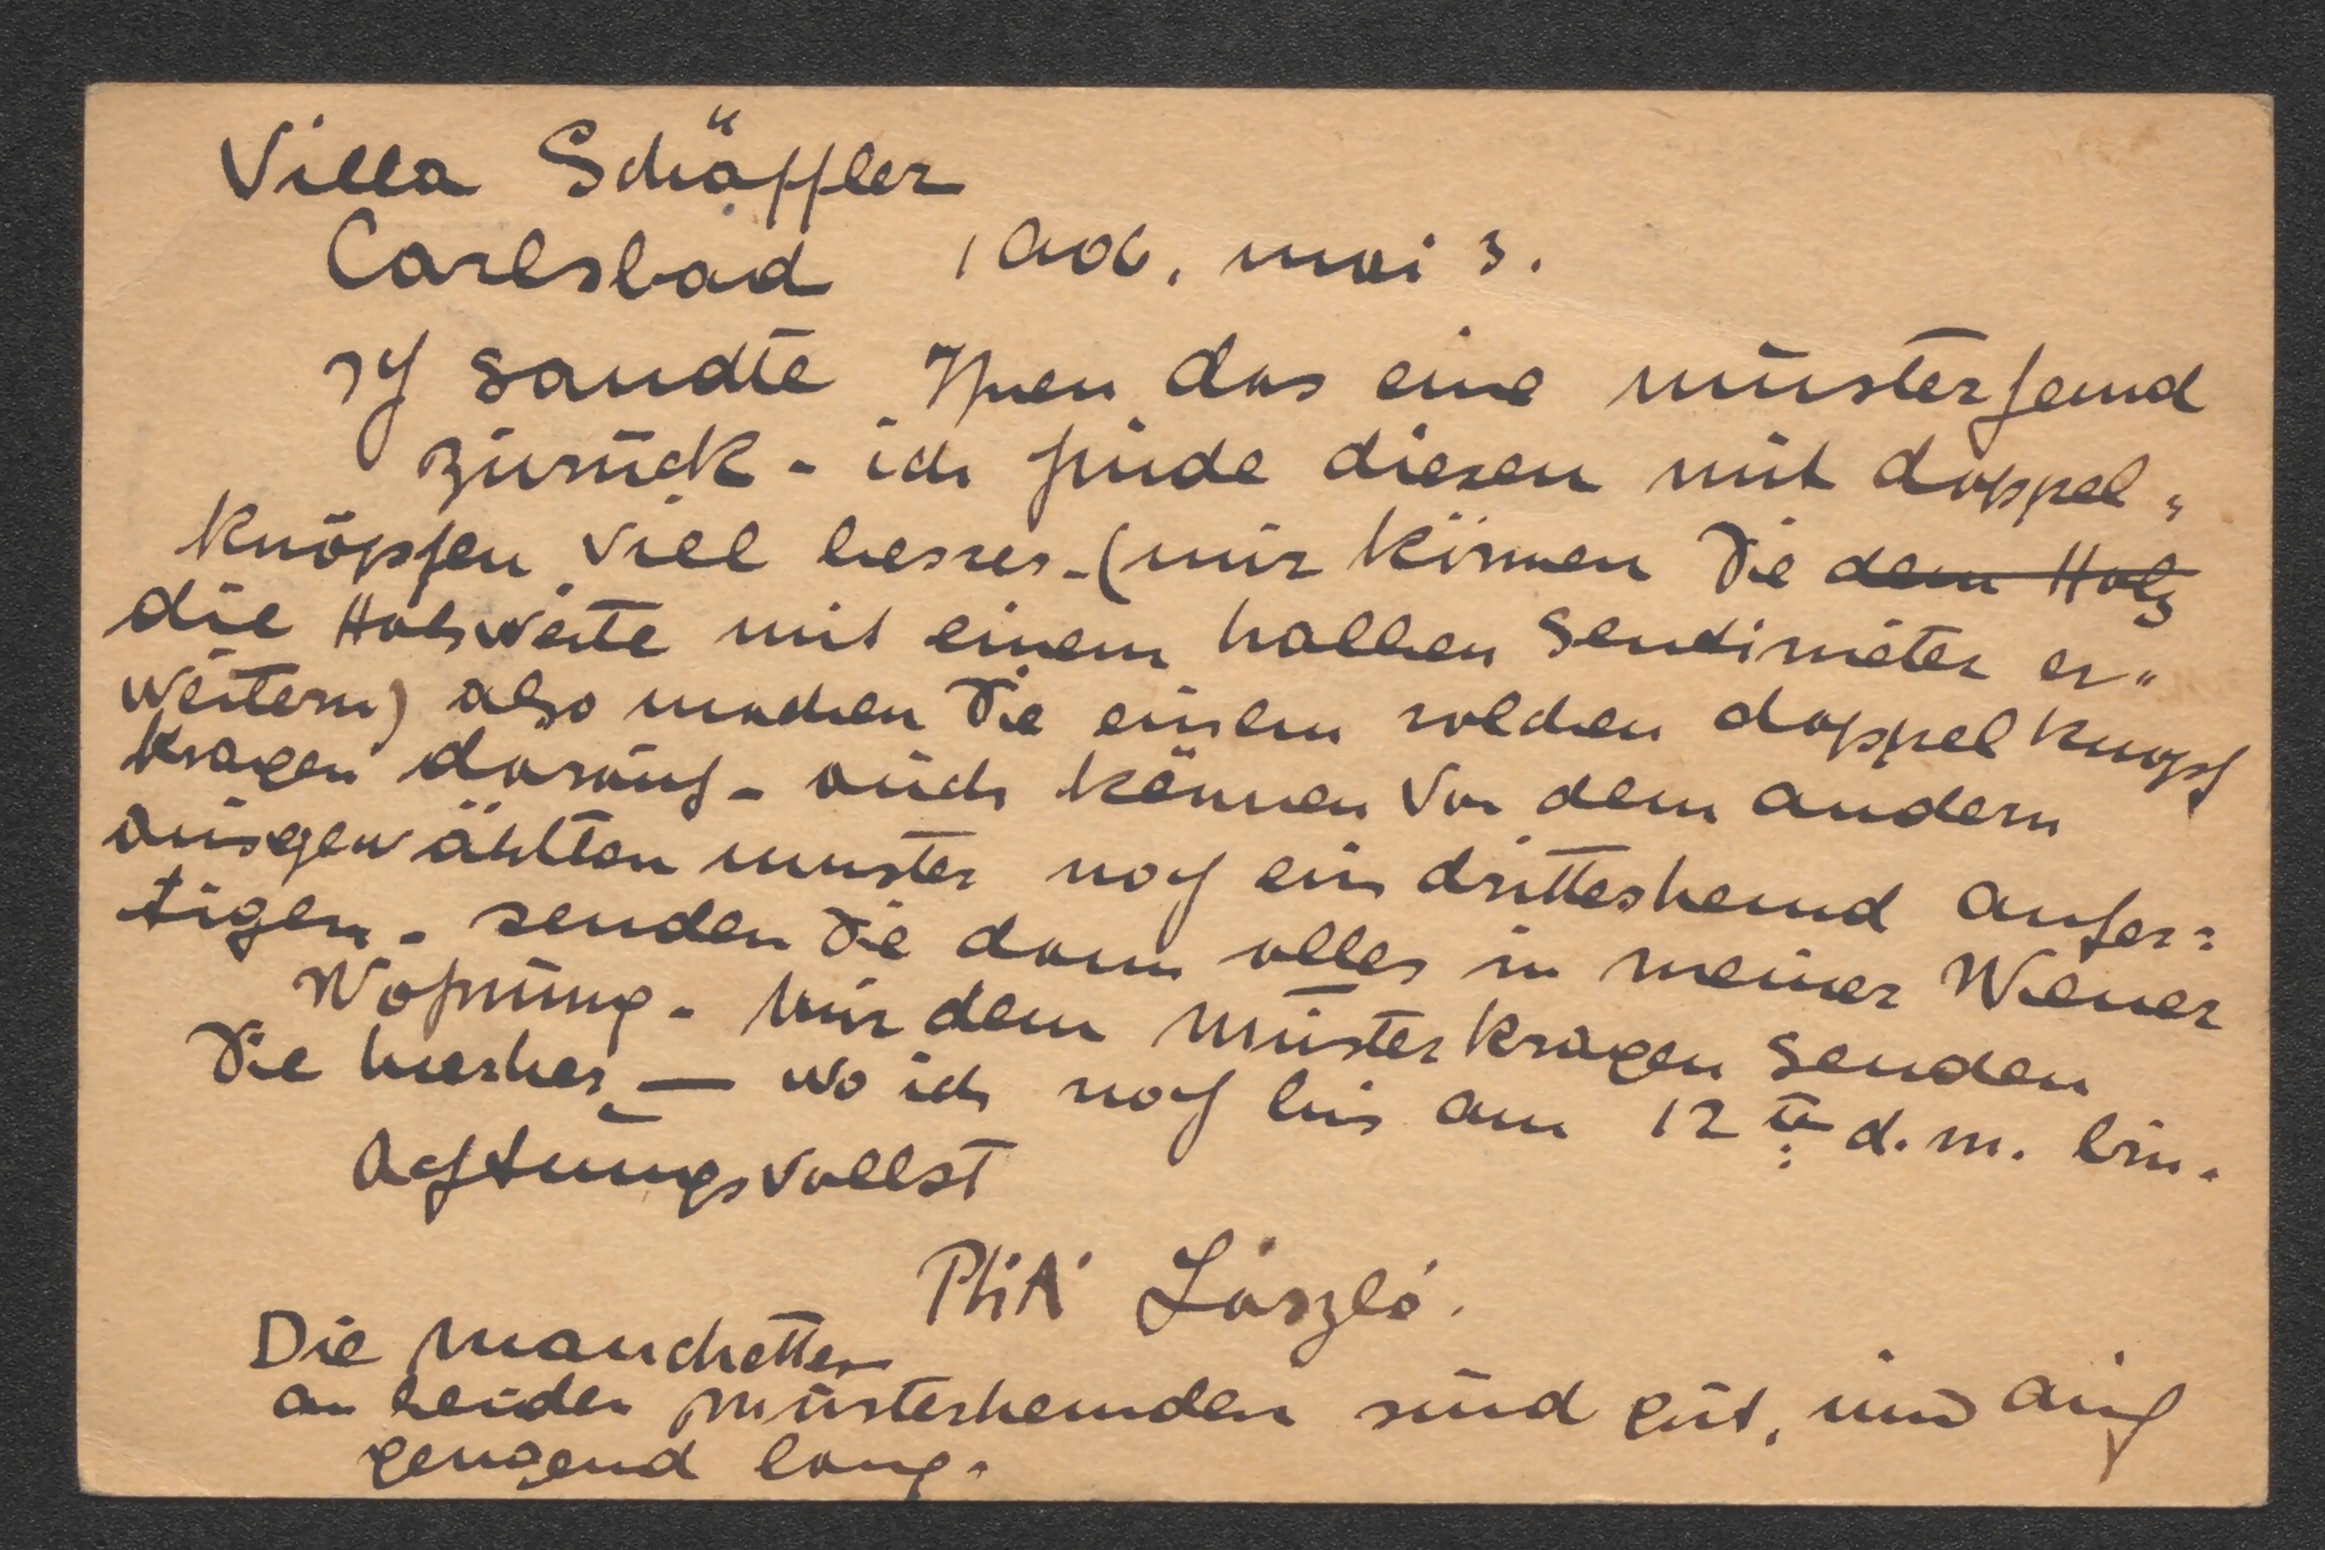 Villa Schäffler
Carlsbad 1906. mai 3.
Ich sandte Ihnen das eine musterhemd
zurück - ich finde diesen mit doppel=
knöpfen viel besser - (nur können Sie dem Hals
die Halsweite mit einem halben Sentimeter er=
weitern) also machen Sie einem solchen doppel knopf
kragen darauf - auch können Von dem andern
ausgewählten muster noch ein dritteshemd anfer=
tigen - senden Sie dann alles in meiner Wiener
Wohnung - Nur dem Muster kragen senden
Sie hierher, — wo ich noch bis am 12 ten d. m. bin.
Achtungsvollst
László.
Die Manchetten
an beiden Musterhemden sind gut, und auch
genugend lang.